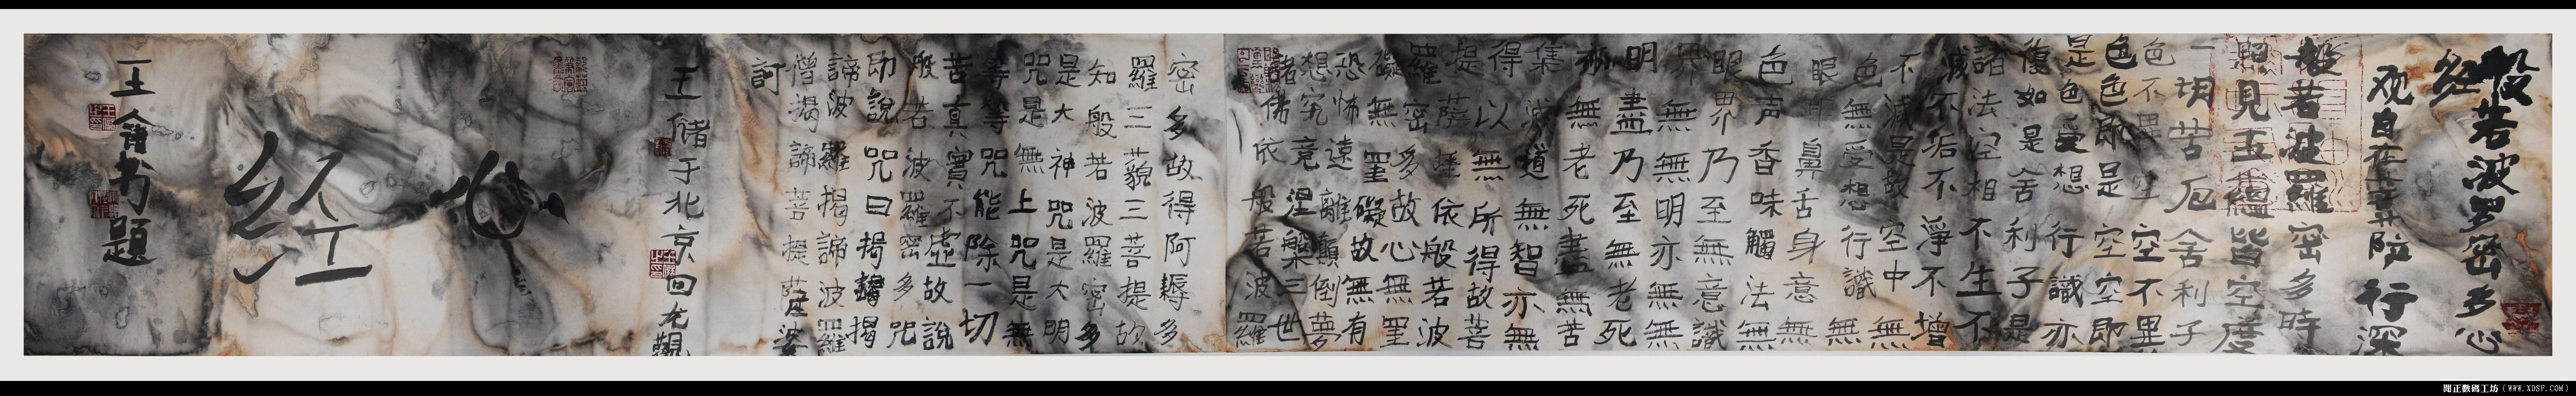 般若波罗密多心
经
观自在菩萨行深
般若波羅密多時
照見五蘊皆空度
一切苦厄舍利子
色不異空空不異
色色即是空空即
是色受想行識亦
復如是舍利子是
諸法空相不生不
滅不垢不淨不增
不減是故空中
色無受想行識無
眼耳鼻舌身意無
色声香味觸法無
眼界乃至無意識
界無無明亦無無
明盡乃至無老死
亦無老死盡無苦
集滅道無智亦無
得以無所得故菩
提薩埵依般若波
羅密多故心無罣
礙無罣礙故無有
恐怖遠離顛倒夢
想究竟涅槃三世
諸佛依般若波羅
密多故得阿耨多
羅三藐三菩提故
知般若波羅密多
是大神咒是大明
咒是無上咒是無
等等咒能除一切
苦真實不虛故說
般若波羅密多咒
即說咒曰揭揭揭
諦波羅揭諦波羅
僧揭諦菩提薩婆
訶
王儲于北京回龙觀
心
经
王儲书題
聞正數碼工坊（WWW.XDSF.COM）